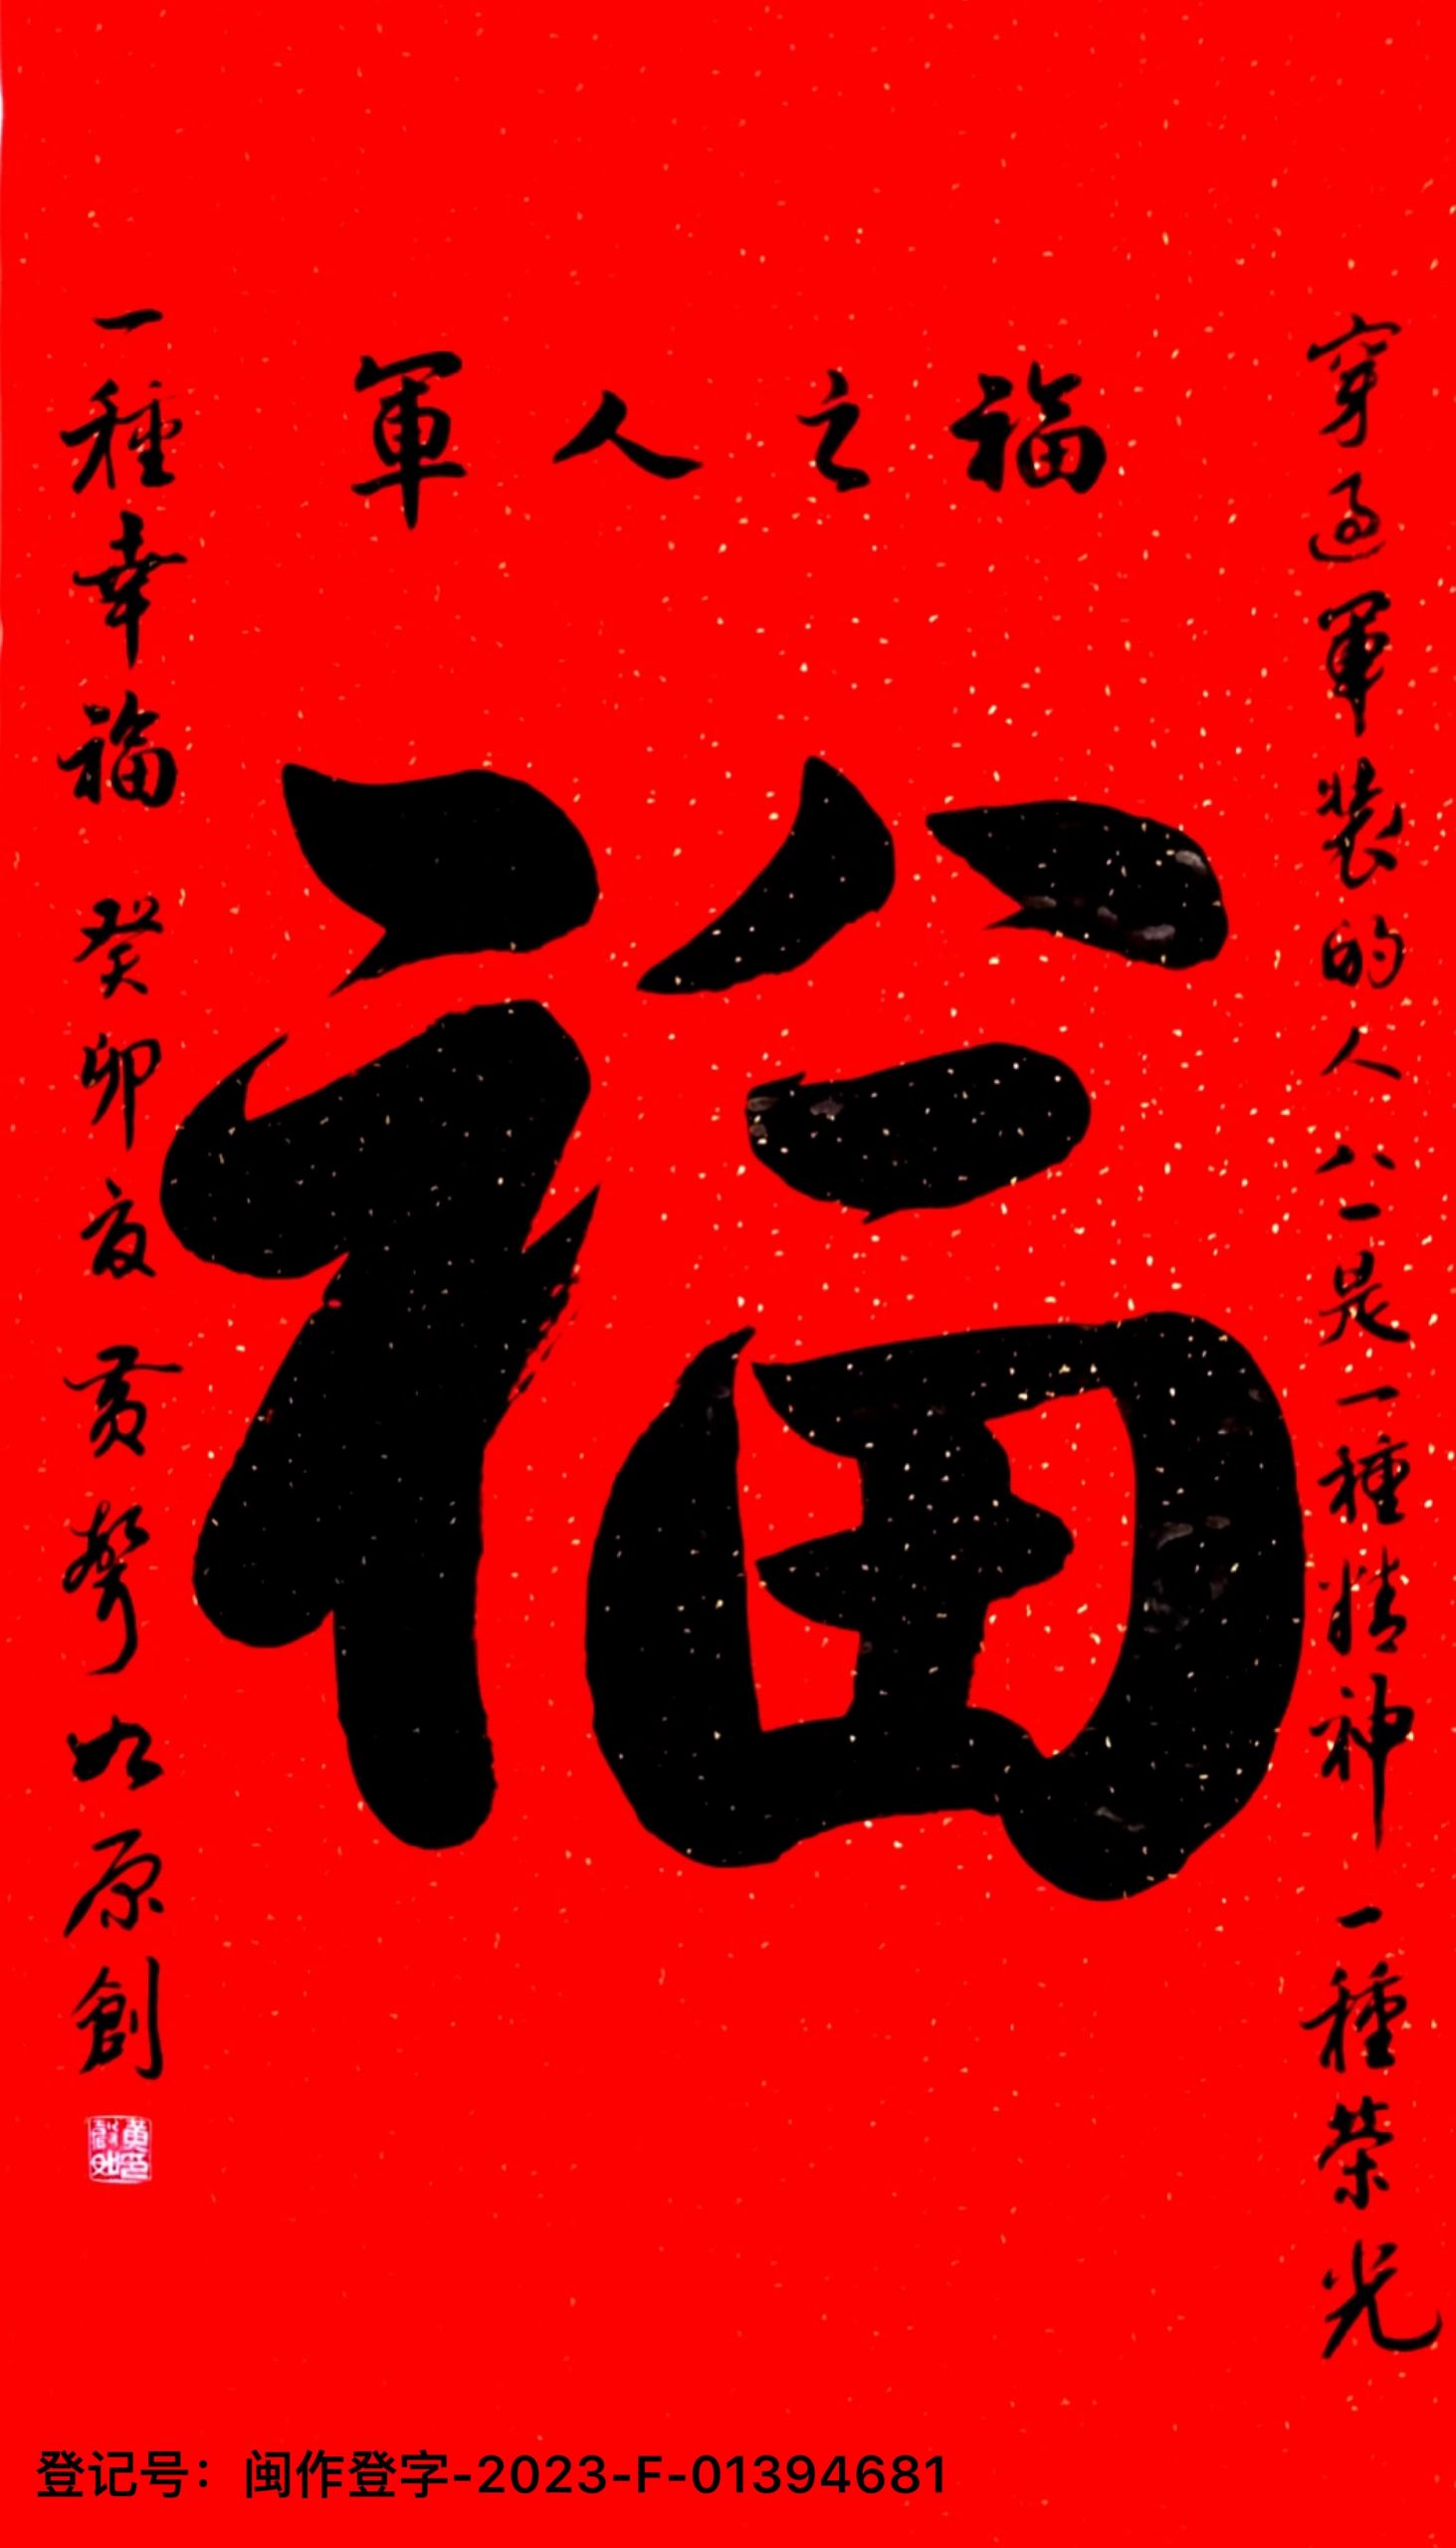 軍人之福
穿過軍裝的人八一是一種精神一種荣光
福
一種幸福 癸卯夏 黄聲如原創
登记号：闽作登字-2023-F-01394681